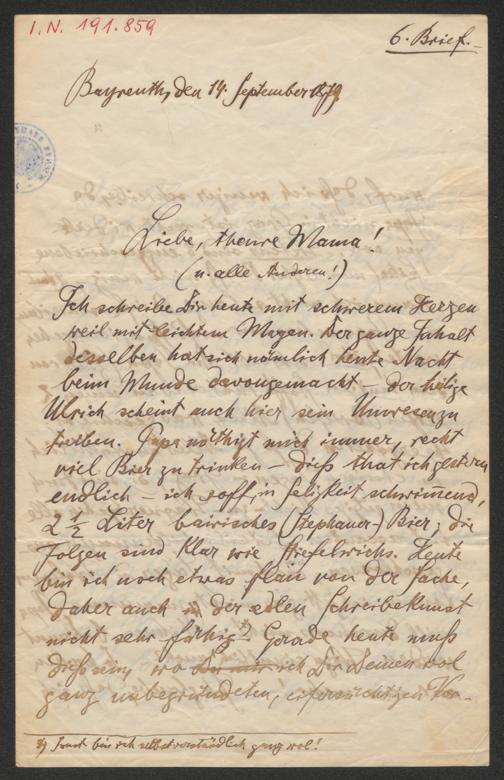 I.N. 191.859
6. Brief.
Bayreuth, den 14. September 1879
Liebe, theure Mama!
(u. alle Anderen!)
Ich schreibe Dir heute mit schwerem Herzen
weil mit leichtem Magen. Der ganze Inhalt
desselben hat sich nämlich heute Nacht
beim Munde davongemacht – der heilige
Ulrich scheint auch hier sein Unwesen zu
treiben. Papa nöthigt mich immer, recht
viel Bier zu trinken – dieß that ich gestern
endlich – ich soff, in Seligkeit schwimmend,
2 ½ Liter bairisches (Stephaner-) Bier; die
Folgen sind klar wie Stiefelwichs. Heute
bin ich noch etwas flau von der Sache,
daher auch in der edlen Schreibekunst
nicht sehr fähig *) Gerade heute muß
dieß sein, wo ich Dir Deinen wol
ganz unbegründeten, eifersüchtigen Vor-
*) Sonst bin ich selbstverständlich ganz wol!